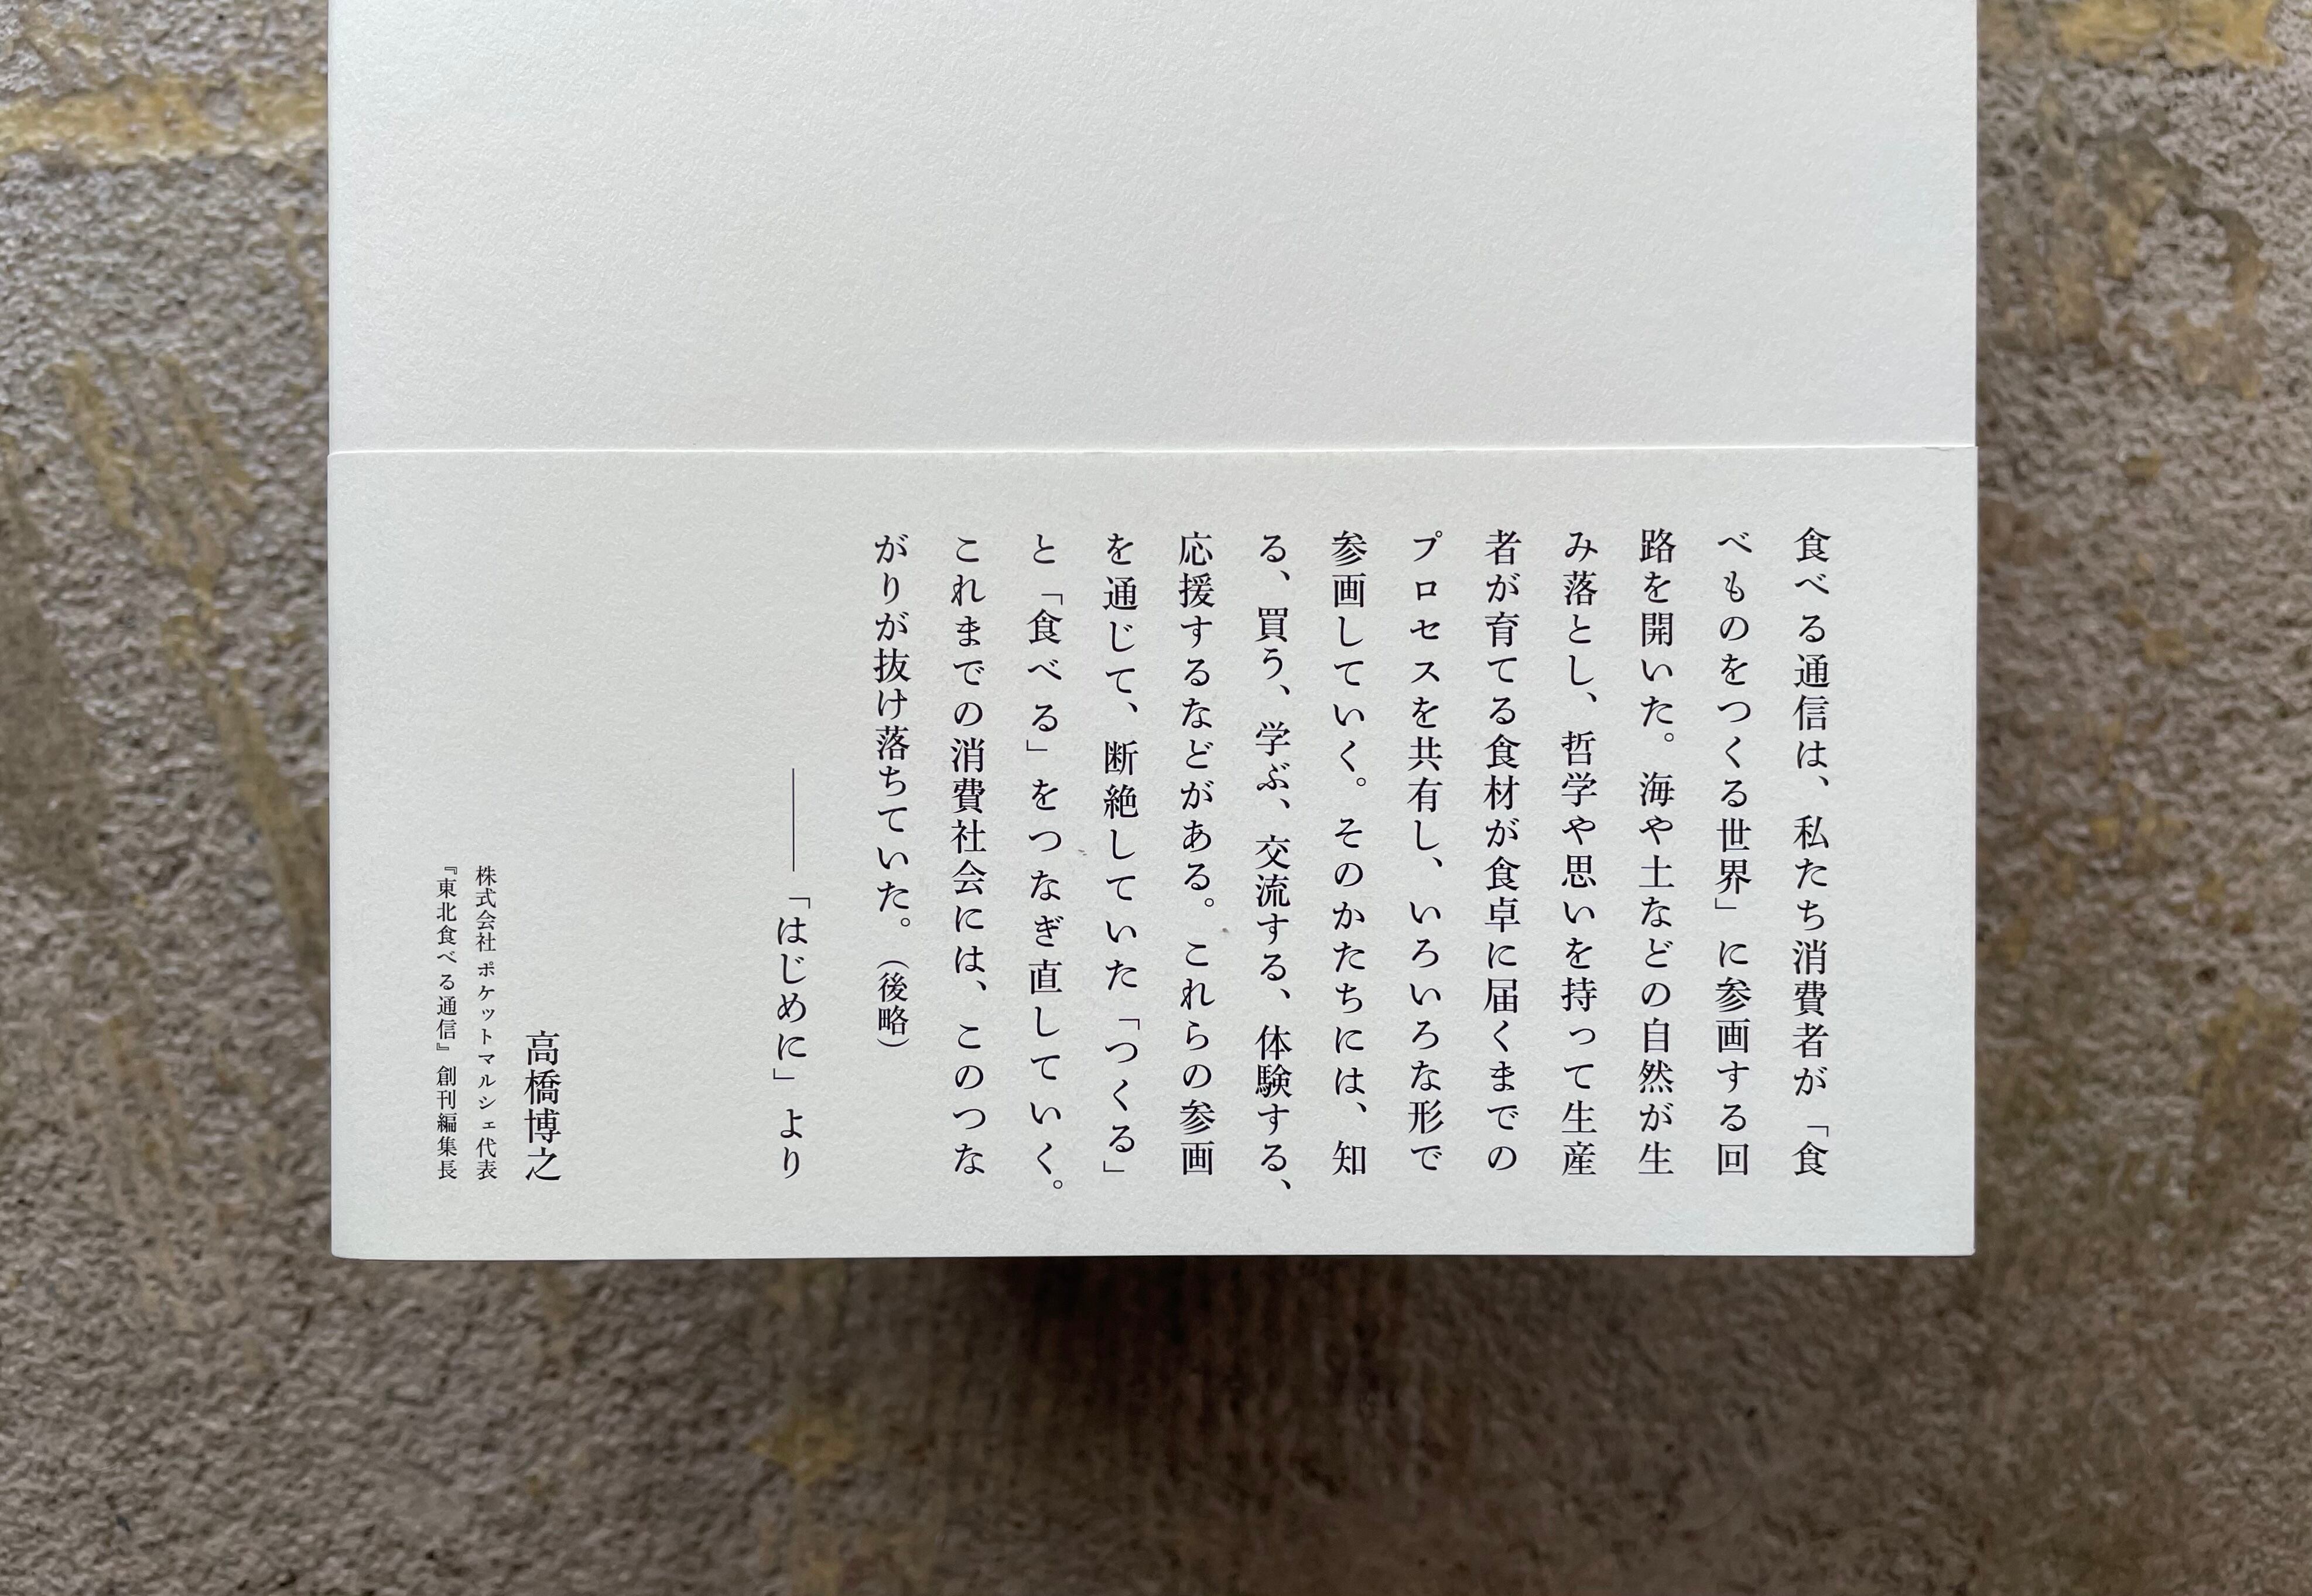 食べる通信は、私たち消費者が「食
べものをつくる世界」に参画する回
路を開いた。海や土などの自然が生
み落とし、哲学や思いを持って生産
者が育てる食材が食卓に届くまでの
プロセスを共有し、いろいろな形で
参画していく。そのかたちには、知
る、買う、学ぶ、交流する、体験する、
応援するなどがある。これらの参画
を通じて、断絶していた「つくる」
と「食べる」をつなぎ直していく。
これまでの消費社会には、このつな
がりが抜け落ちていた。（後略）
――「はじめに」より
高橋博之
株式会社 ポケットマルシェ代表
『東北食べる通信』創刊編集長